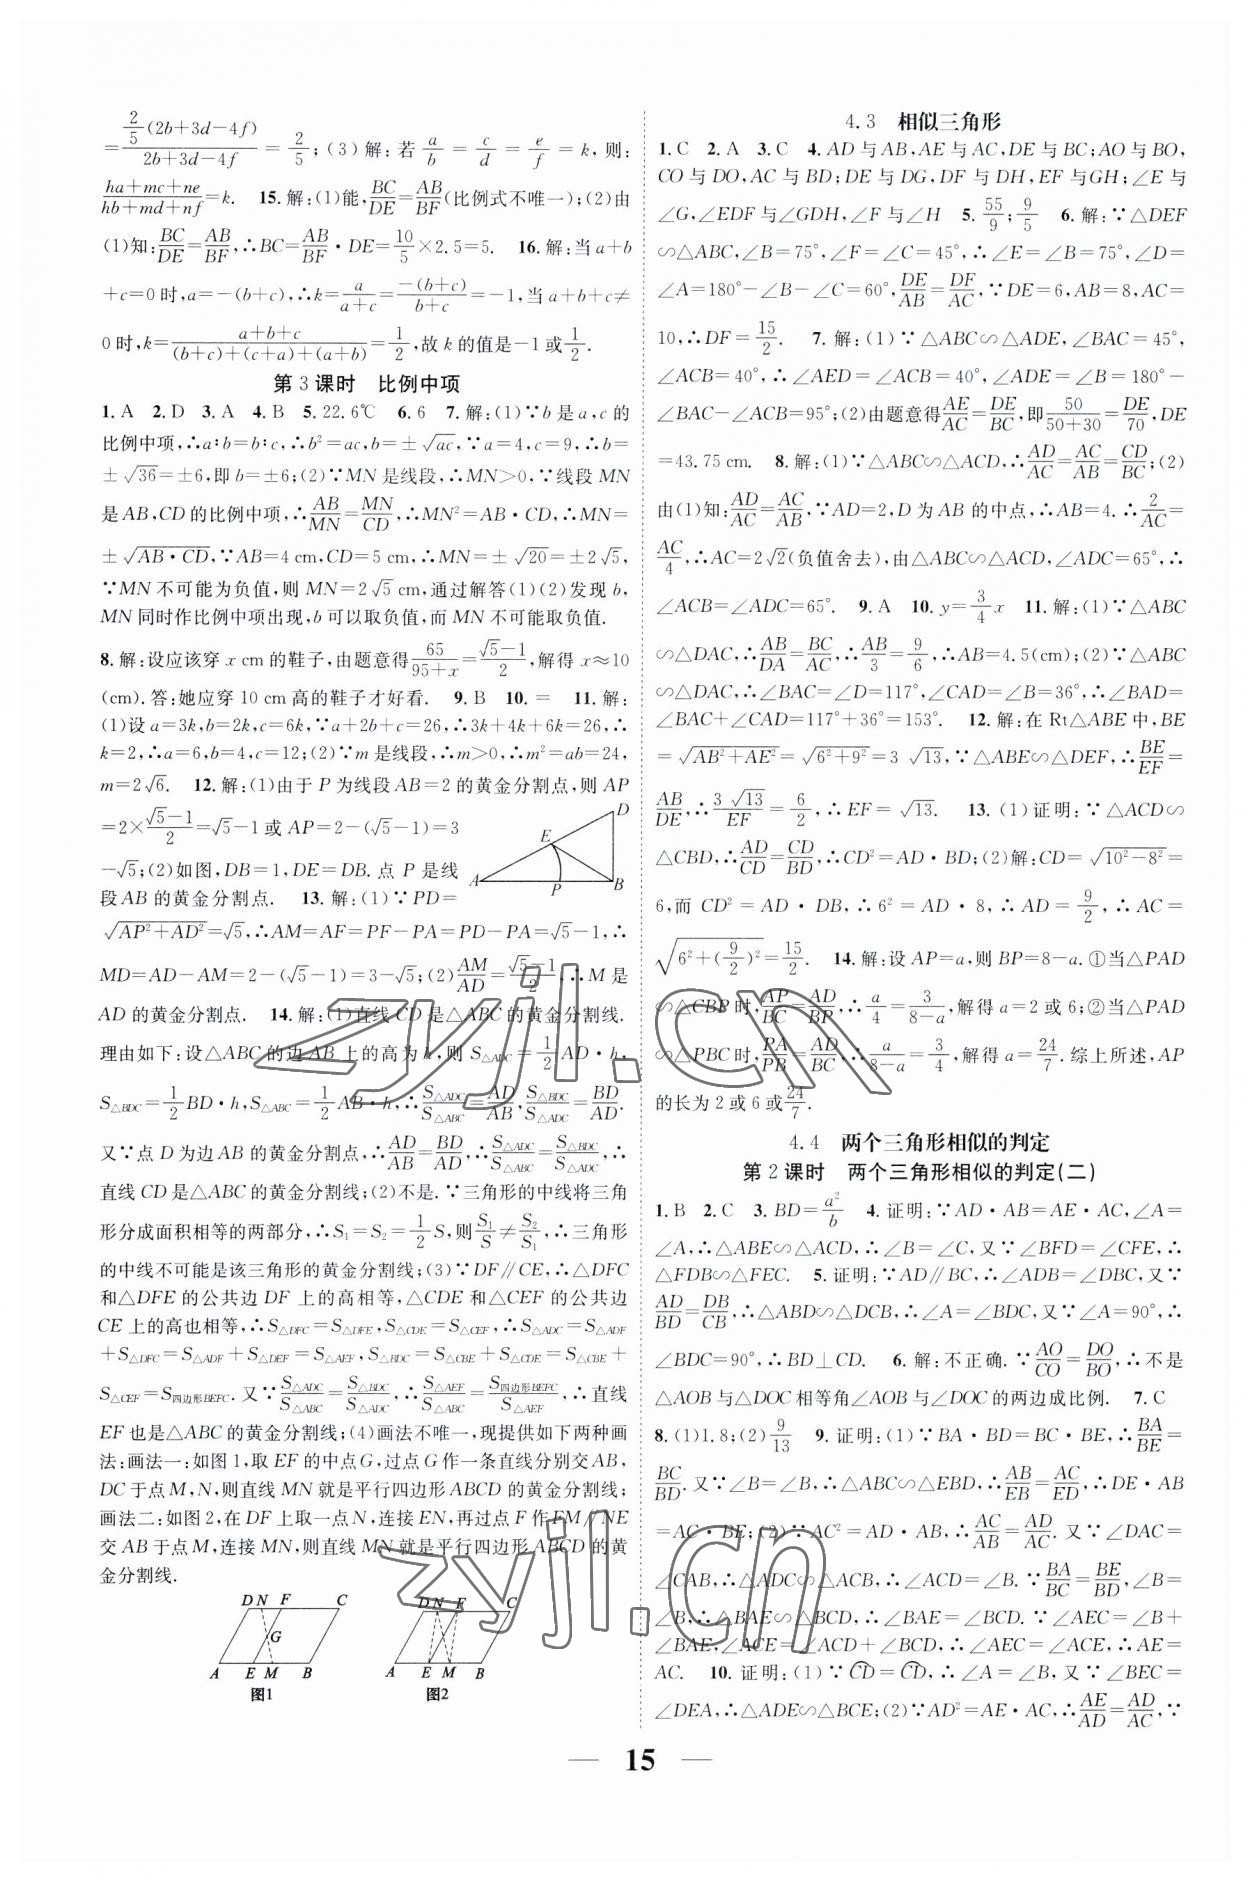 =\frac{\frac{2}{5}(2b+3d-4f)}{2b+3d-4f}=\frac{2}{5};(3)解:若\frac{a}{b}=\frac{c}{d}=\frac{e}{f}=k,则:
\frac{ha+mc+ne}{hb+md+nf}=k. 15.解:(1)能,\frac{BC}{DE}=\frac{AB}{BF}(比例式不唯一);(2)由
(1)知:\frac{BC}{DE}=\frac{AB}{BF},∴BC=\frac{AB}{BF}·DE=\frac{10}{5}×2.5=5. 16.解:当a+b
+c=0时,a=-(b+c),∴k=\frac{a}{a+c}=\frac{-(b+c)}{b+c}=-1,当a+b+c≠
0时,k=\frac{a+b+c}{(b+c)+(c+a)+(a+b)}=\frac{1}{2},故k的值是-1或\frac{1}{2}.
第3课时 比例中项
1.A 2.D 3.A 4.B 5.22.6℃ 6.6 7.解:(1)∵b是a,c的
比例中项,∴a:b=b:c,∴b²=ac,b=±√ac,∵a=4,c=9,∴b=
±√36=±6,即b=±6;(2)∵MN是线段,∴MN>0,∵线段MN
是AB,CD的比例中项,∴\frac{AB}{MN}=\frac{MN}{CD},∴MN²=AB·CD,∴MN=
±√AB·CD,∵AB=4 cm,CD=5 cm,∴MN=±√20=±2√5,
∵MN不可能为负值,则MN=2√5 cm,通过解答(1)(2)发现b,
MN同时作比例中项出现,b可以取负值,而MN不可能取负值.
8.解:设应该穿x cm的鞋子,由题意得\frac{65}{95+x}=\frac{√5-1}{2},解得x≈10
(cm).答:她应穿10 cm高的鞋子才好看. 9.B 10.= 11.解:
(1)设a=3k,b=2k,c=6k,∵a+2b+c=26,∴3k+4k+6k=26,∴
k=2,∴a=6,b=4,c=12;(2)∵m是线段,∴m>0,∴m²=ab=24,
m=2√6. 12.解:(1)由于P为线段AB=2的黄金分割点,则AP
=2×\frac{√5-1}{2}=√5-1或AP=2-(√5-1)=3
-√5;(2)如图,DB=1,DE=DB.点P是线
段AB的黄金分割点. 13.解:(1)∵PD=
D
E
A P B
√(AP²+AD²)=√5,∴AM=AF=PF-PA=PD-PA=√5-1,∴
MD=AD-AM=2-(√5-1)=3-√5;(2)\frac{AM}{AD}=\frac{√5-1}{2},∴M是
AD的黄金分割点. 14.解:(1)直线CD是△ABC的黄金分割线.
理由如下:设△ABC的边AB上的高为h,则S△ADC=\frac{1}{2}AD·h,
S△BDC=\frac{1}{2}BD·h,S△ABC=\frac{1}{2}AB·h,∴\frac{S△ADC}{S△ABC}=\frac{AD}{AB},\frac{S△BDC}{S△ADC}=\frac{BD}{AD}.
又∵点D为边AB的黄金分割点,∴\frac{AD}{AB}=\frac{BD}{AD},∴\frac{S△ADC}{S△ABC}=\frac{S△BDC}{S△ADC},∴
直线CD是△ABC的黄金分割线;(2)不是.∵三角形的中线将三角
形分成面积相等的两部分,∴S₁=S₂=\frac{1}{2}S,则\frac{S₁}{S}≠\frac{S₂}{S₁},∴三角形
的中线不可能是该三角形的黄金分割线;(3)∵DF∥CE,∴△DFC
和△DFE的公共边DF上的高相等,△CDE和△CEF的公共边
CE上的高也相等,∴S△DFC=S△DFE,S△CDE=S△CEF,∴S△ADC=S△ADF
+S△DFC=S△ADF+S△DEF=S△AEF,S△BDC=S△CBE+S△CDE=S△CBE+
S△CEF=S四边形BEFC.又∵\frac{S△ADC}{S△ABC}=\frac{S△BDC}{S△ADC},∴\frac{S△AEF}{S△ABC}=\frac{S四边形BEFC}{S△AEF},∴直线
EF也是△ABC的黄金分割线;(4)画法不唯一,现提供如下两种画
法:画法一:如图1,取EF的中点G,过点G作一条直线分别交AB,
DC于点M,N,则直线MN就是平行四边形ABCD的黄金分割线;
画法二:如图2,在DF上取一点N,连接EN,再过点F作FM∥NE
交AB于点M,连接MN,则直线MN就是平行四边形ABCD的黄
金分割线.
D N F C
G
A E M B
图1
D N F C
A E M B
图2
4.3 相似三角形
1.C 2.A 3.C 4.AD与AB,AE与AC,DE与BC;AO与BO,
CO与DO,AC与BD;DE与DG,DF与DH,EF与GH;∠E与
∠G,∠EDF与∠GDH,∠F与∠H 5.\frac{55}{9};\frac{9}{5} 6.解:∵△DEF
∽△ABC,∠B=75°,∠F=∠C=45°,∴∠E=∠B=75°,∠D=
∠A=180°-∠B-∠C=60°,\frac{DE}{AB}=\frac{DF}{AC},∵DE=6,AB=8,AC=
10,∴DF=\frac{15}{2}. 7.解:(1)∵△ABC∽△ADE,∠BAC=45°,
∠ACB=40°,∴∠AED=∠ACB=40°,∠ADE=180°-
∠BAC-∠ACB=95°;(2)由题意得\frac{AE}{AC}=\frac{DE}{BC},即\frac{50}{50+30}=\frac{DE}{70},DE
=43.75 cm. 8.解:(1)∵△ABC∽△ACD,∴\frac{AD}{AC}=\frac{AC}{AB}=\frac{CD}{BC};(2)
由(1)知:\frac{AD}{AC}=\frac{AC}{AB},∵AD=2,D为AB的中点,∴AB=4.∴\frac{2}{AC}=
\frac{AC}{4},∴AC=2√2(负值舍去),由△ABC∽△ACD,∠ADC=65°,∴
∠ACB=∠ADC=65°. 9.A 10.y=\frac{3}{4}x 11.解:(1)∵△ABC
∽△DAC,∴\frac{AB}{DA}=\frac{BC}{AC},∴\frac{AB}{3}=\frac{9}{6},∴AB=4.5(cm);(2)∵△ABC
∽△DAC,∴∠BAC=∠D=117°,∠CAD=∠B=36°,∴∠BAD=
∠BAC+∠CAD=117°+36°=153°. 12.解:在Rt△ABE中,BE
=√(AB²+AE²)=√(6²+9²)=3√13,∵△ABE∽△DEF,∴\frac{BE}{EF}=
\frac{AB}{DE},∴\frac{3√13}{EF}=\frac{6}{2},∴EF=√13. 13.(1)证明:∵△ACD∽
△CBD,∴\frac{AD}{CD}=\frac{CD}{BD},∴CD²=AD·BD;(2)解:CD=√(10²-8²)=
6,而CD²=AD·DB,∴6²=AD·8,∴AD=\frac{9}{2},∴AC=
√(6²+(\frac{9}{2})²)=\frac{15}{2}. 14.解:设AP=a,则BP=8-a.①当△PAD
∽△CBP时,\frac{AP}{BC}=\frac{AD}{BP},∴\frac{a}{4}=\frac{3}{8-a},解得a=2或6;②当△PAD
∽△PBC时,\frac{PA}{PB}=\frac{AD}{BC},∴\frac{a}{8-a}=\frac{3}{4},解得a=\frac{24}{7}.综上所述,AP
的长为2或6或\frac{24}{7}.
4.4 两个三角形相似的判定
第2课时 两个三角形相似的判定(二)
1.B 2.C 3.BD=\frac{a²}{b} 4.证明:∵AD·AB=AE·AC,∠A=
∠A,∴△ABE∽△ACD,∴∠B=∠C,又∵∠BFD=∠CFE,∴
△FDB∽△FEC. 5.证明:∵AD∥BC,∴∠ADB=∠DBC,又∵
\frac{AD}{BD}=\frac{DB}{CB},∴△ABD∽△DCB,∴∠A=∠BDC,又∵∠A=90°,∴
∠BDC=90°,∴BD⊥CD. 6.解:不正确.∵\frac{AO}{CO}=\frac{DO}{BO},∴不是
△AOB与△DOC相等角∠AOB与∠DOC的两边成比例. 7.C
8.(1)1.8;(2)\frac{9}{13} 9.证明:(1)∵BA·BD=BC·BE,∴\frac{BA}{BE}=
\frac{BC}{BD}.又∵∠B=∠B,∴△ABC∽△EBD,∴\frac{AB}{EB}=\frac{AC}{ED},∴DE·AB
=AC·BE;(2)∵AC²=AD·AB,∴\frac{AC}{AB}=\frac{AD}{AC}.又∵∠DAC=
∠CAB,∴△ADC∽△ACB,∴∠ACD=∠B.∵\frac{BA}{BC}=\frac{BE}{BD},∠B=
∠B,∴△BAE∽△BCD,∴∠BAE=∠BCD.∵∠AEC=∠B+
∠BAE,∠ACE=∠ACD+∠BCD,∴∠AEC=∠ACE,∴AE=
AC. 10.证明:(1)∵CD=CD,∴∠A=∠B,又∵∠BEC=
∠DEA,∴△ADE∽△BCE;(2)∵AD²=AE·AC,∴\frac{AE}{AD}=\frac{AD}{AC},∵
15
zyjl.cn
zyjl.cn